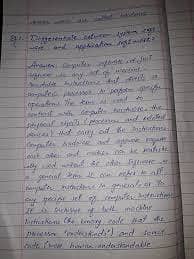 are called
Q1. Differentiate between system soft-
ware and application software?
Answer: Computer software or just
software is any set of machine
readable instructions that directs a
computer's processor to perform specific
operations. The term is used to
contrast with computer hardware, the
physical objects (processor and related
devices) that carry out the instructions.
Computer hardware and software require
each other and neither can be
used without the other. Software is
a general term. It can refer to all
computer instructions in general or to
any specific set of computer instructions.
It is inclusive of both machine
instructions (the binary code that the
processor "understands") and source
code (more human understandable